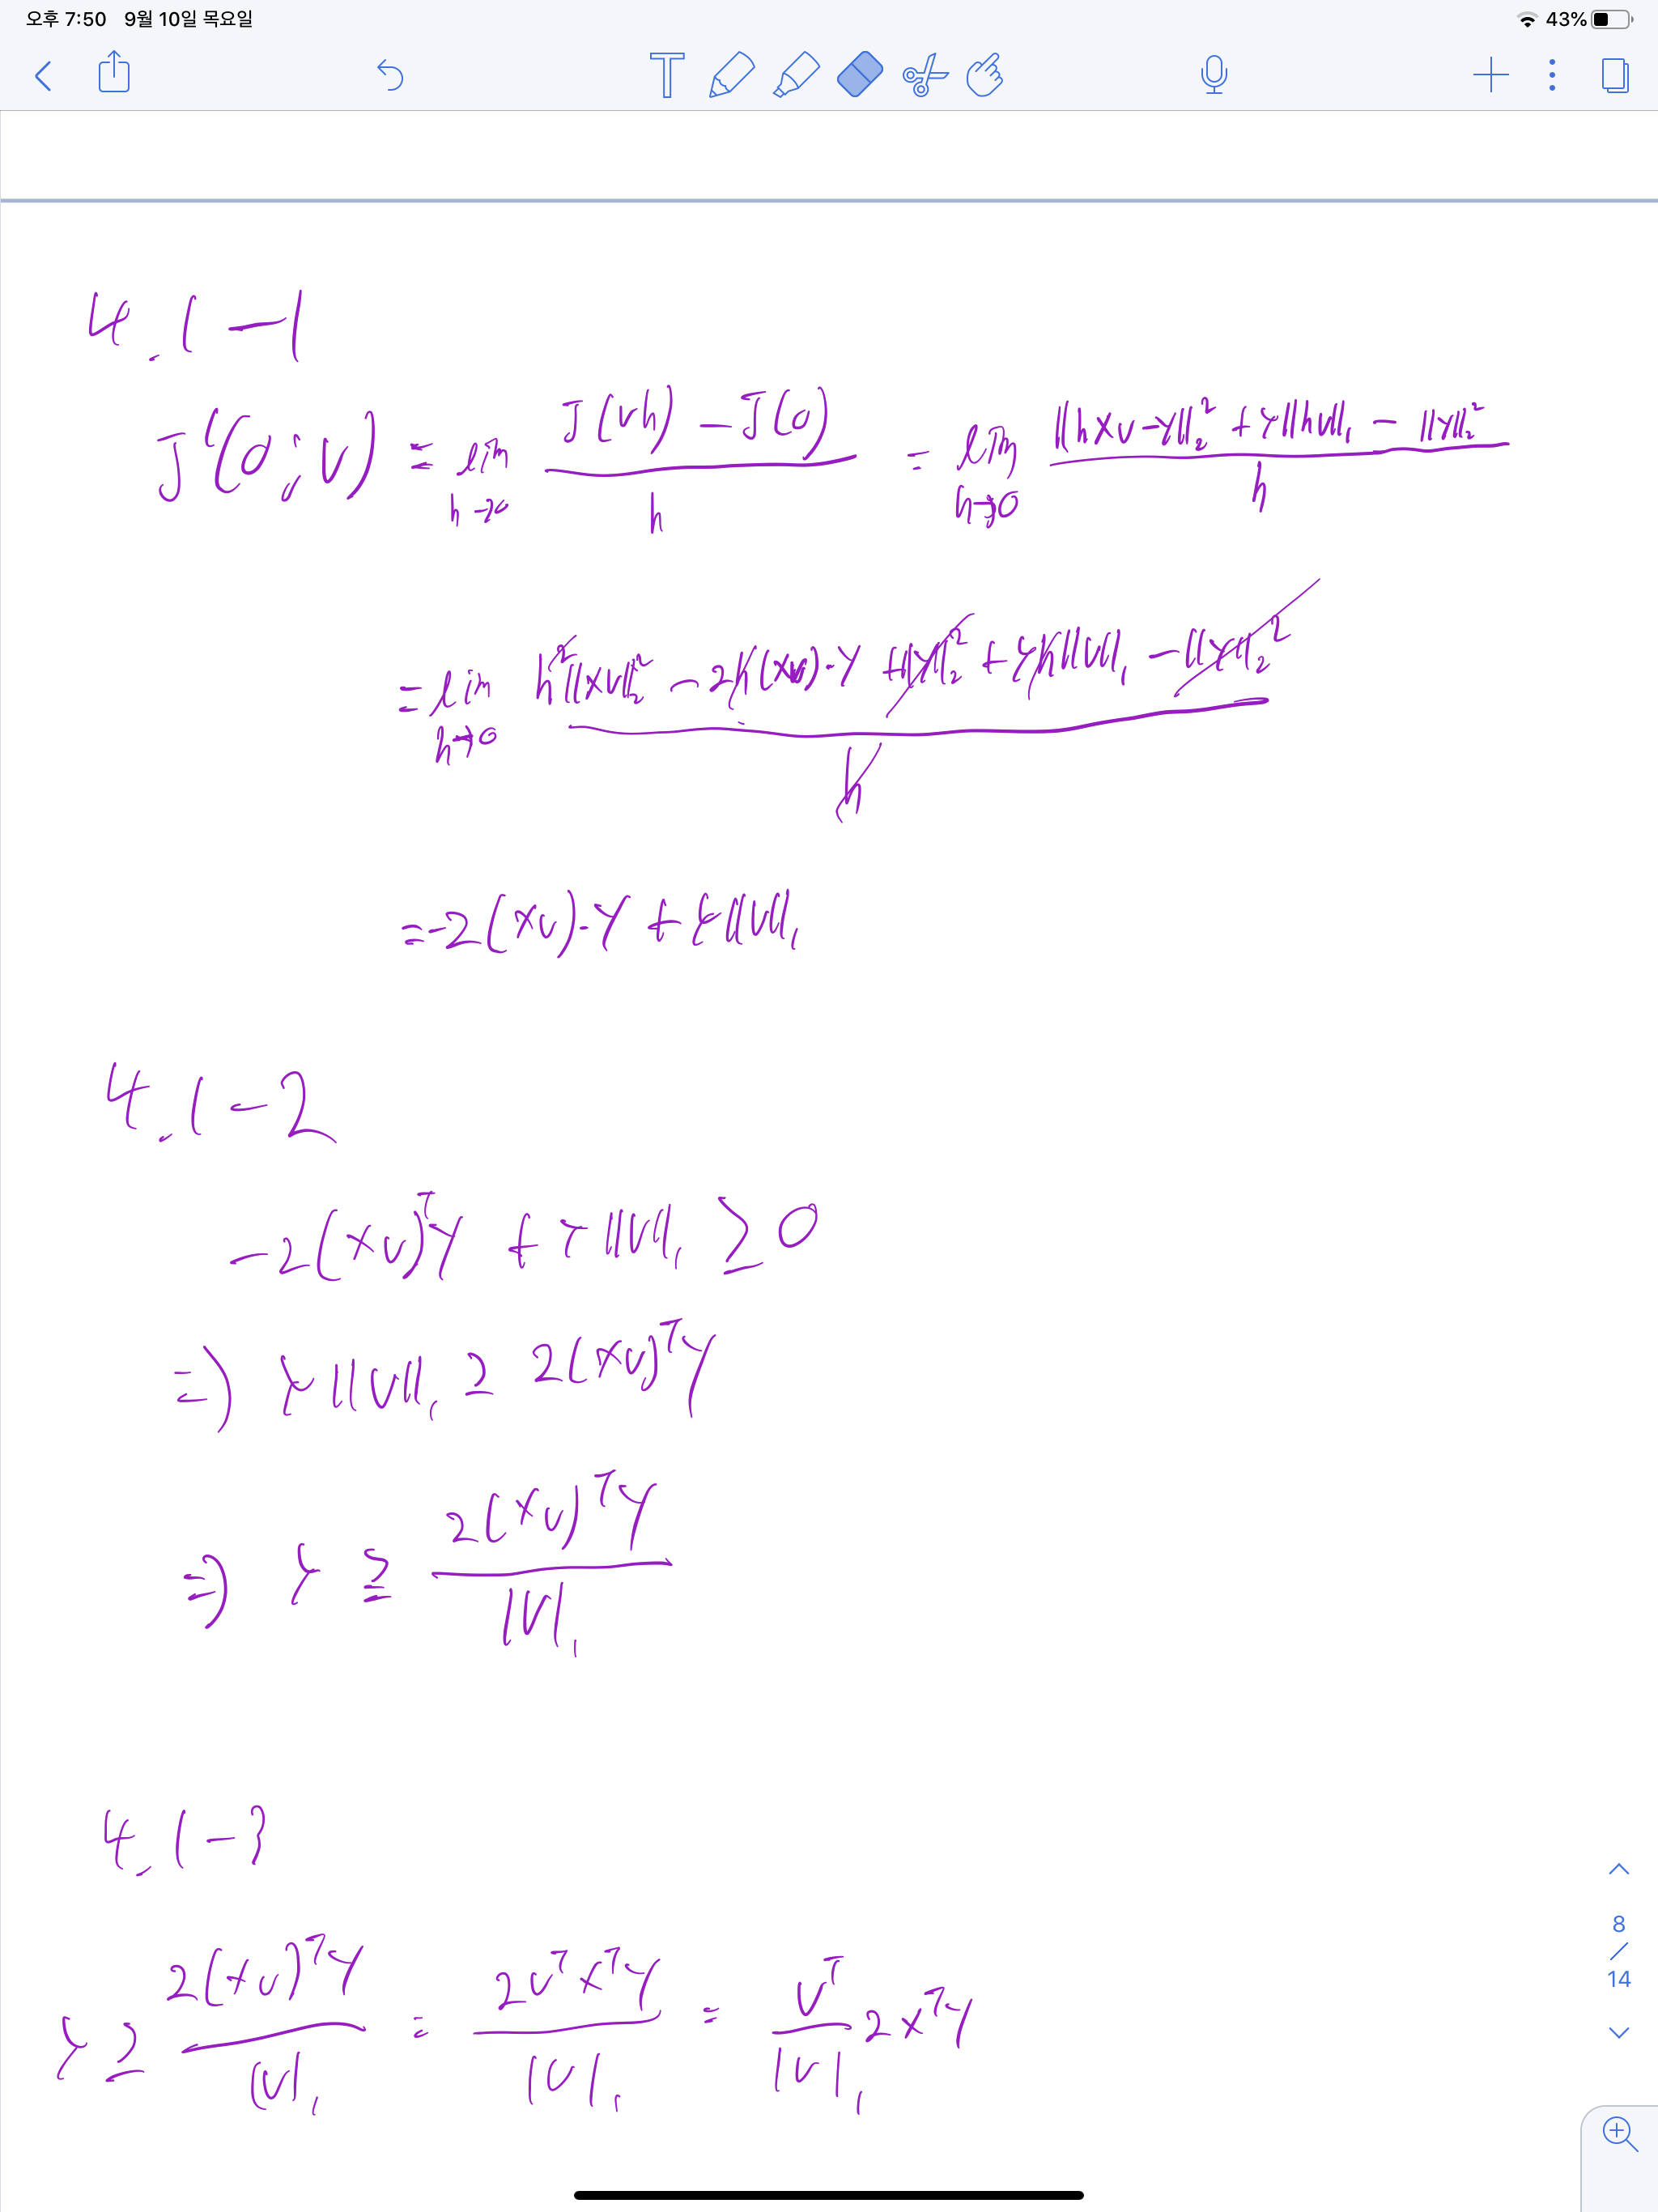 오후 7:50 9월 10일 목요일 43%
4.1-1
J'(0;v) = lim h→0 J(vh) - J(0) / h = lim h→0 ||hxv-y||₂² + γ||hv||₁ - ||y||₂² / h
= lim h→0 h²||xv||₂² - 2h(xv)·y + ||y||₂² + γh||v||₁ - ||y||₂² / h
= -2(xv)·y + γ||v||₁
4.1-2
-2(xv)ᵀy + γ||v||₁ ≥ 0
⇒) γ||v||₁ ≥ 2(xv)ᵀy
⇒) γ ≥ 2(xv)ᵀy / |v|₁
4.1-3
γ ≥ 2(xv)ᵀy / |v|₁ = 2vᵀxᵀy / |v|₁ = vᵀ / |v|₁ 2xᵀy
8 / 14